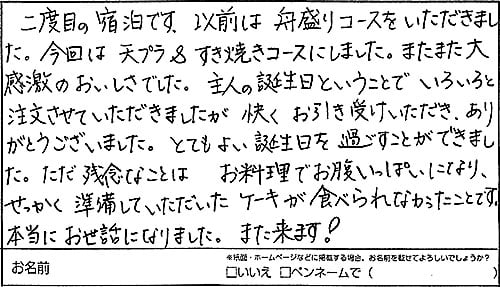 二度目の宿泊です。以前は舟盛りコースをいただきまし
た。今回は天プラ&すき焼きコースにしました。またまた大
感激のおいしさでした。主人の誕生日ということでいろいろと
注文させていただきましたが快くお引き受けいただき、あり
がとうございました。とてもよい誕生日を過ごすことができまし
た。ただ残念なことは お料理でお腹いっぱいになり、
せっかく準備していただいたケーキが食べられなかったことです。
本当にお世話になりました。また来ます!
お名前
※紙面・ホームページなどに掲載する場合、お名前を載せてよろしいでしょうか?
□いいえ □ペンネームで ( )